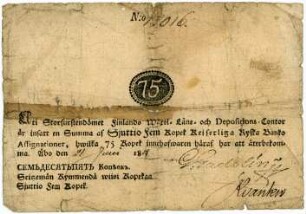 N:o 13016.
75
Uti Storfurstendömet Finlands Wäxel- Låne- och Depositions-Contor
är insatt en Summa af Sjuttio Fem Kopek Keiserliga Ryska Banko
Assignationer, hwilka 75 Kopek innehafwaren häraf har att återbekom-
ma. Åbo den
СЕМЬДЕСЯТЬПЯТЬ Копѣекъ.
Seitzemän Kymmendä wiisi Kopekaa
Sjuttio Fem Kopek.